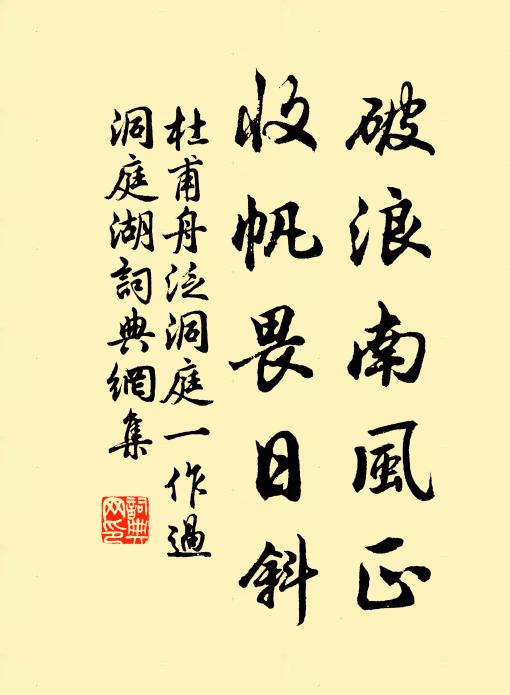 破浪南風正
收帆畏日斜
杜甫舟泛洞庭一作過
洞庭湖詞典網集
詞典網印